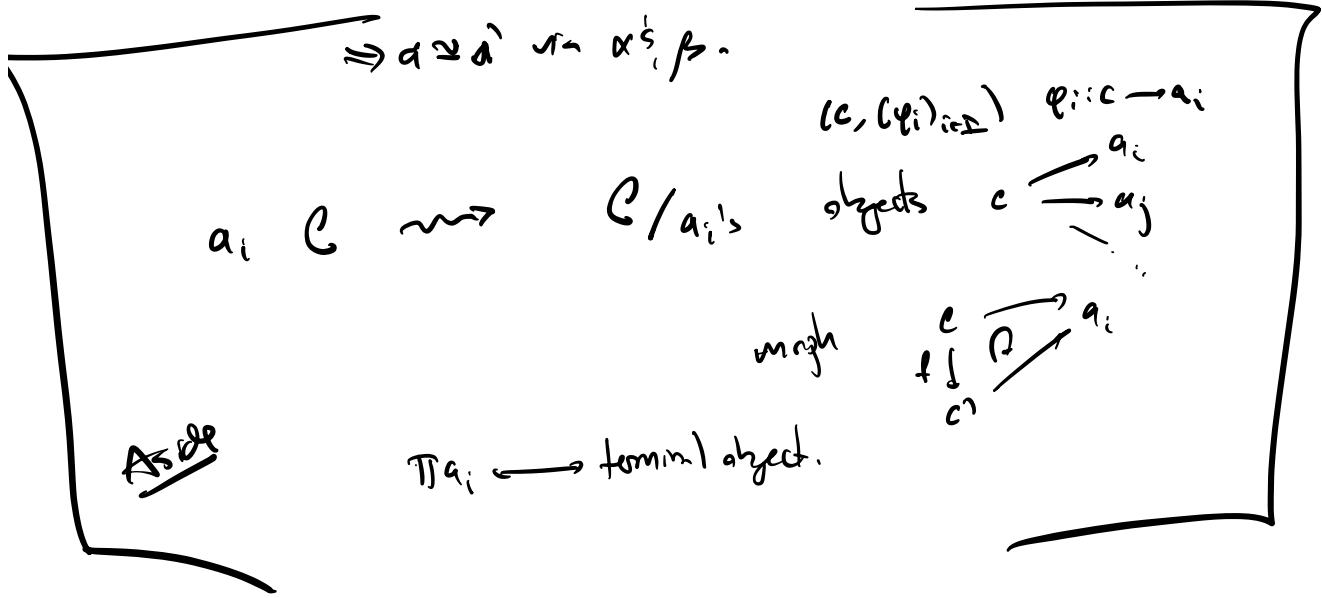 ⇒ a ≃ a' via α's, β.
(c, (φ_i)_{i∈I}) φ_i : c → a_i
a_i C ⇝ C/a_i's objects c → a_i
→ a_j
morph c → a_i
f ↓
c'
Aside ∏a_i ⟷ terminal object.